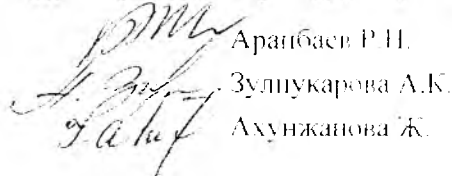 Арапбаев Р.Н.
Зулпукарова А.К.
Ахунжанова Ж.